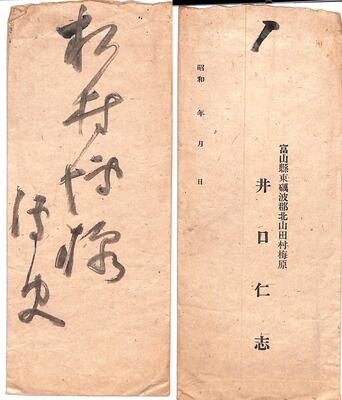 松村様
侍史
昭和　年　月　日
富山縣東礪波郡北山田村梅原
井口仁志